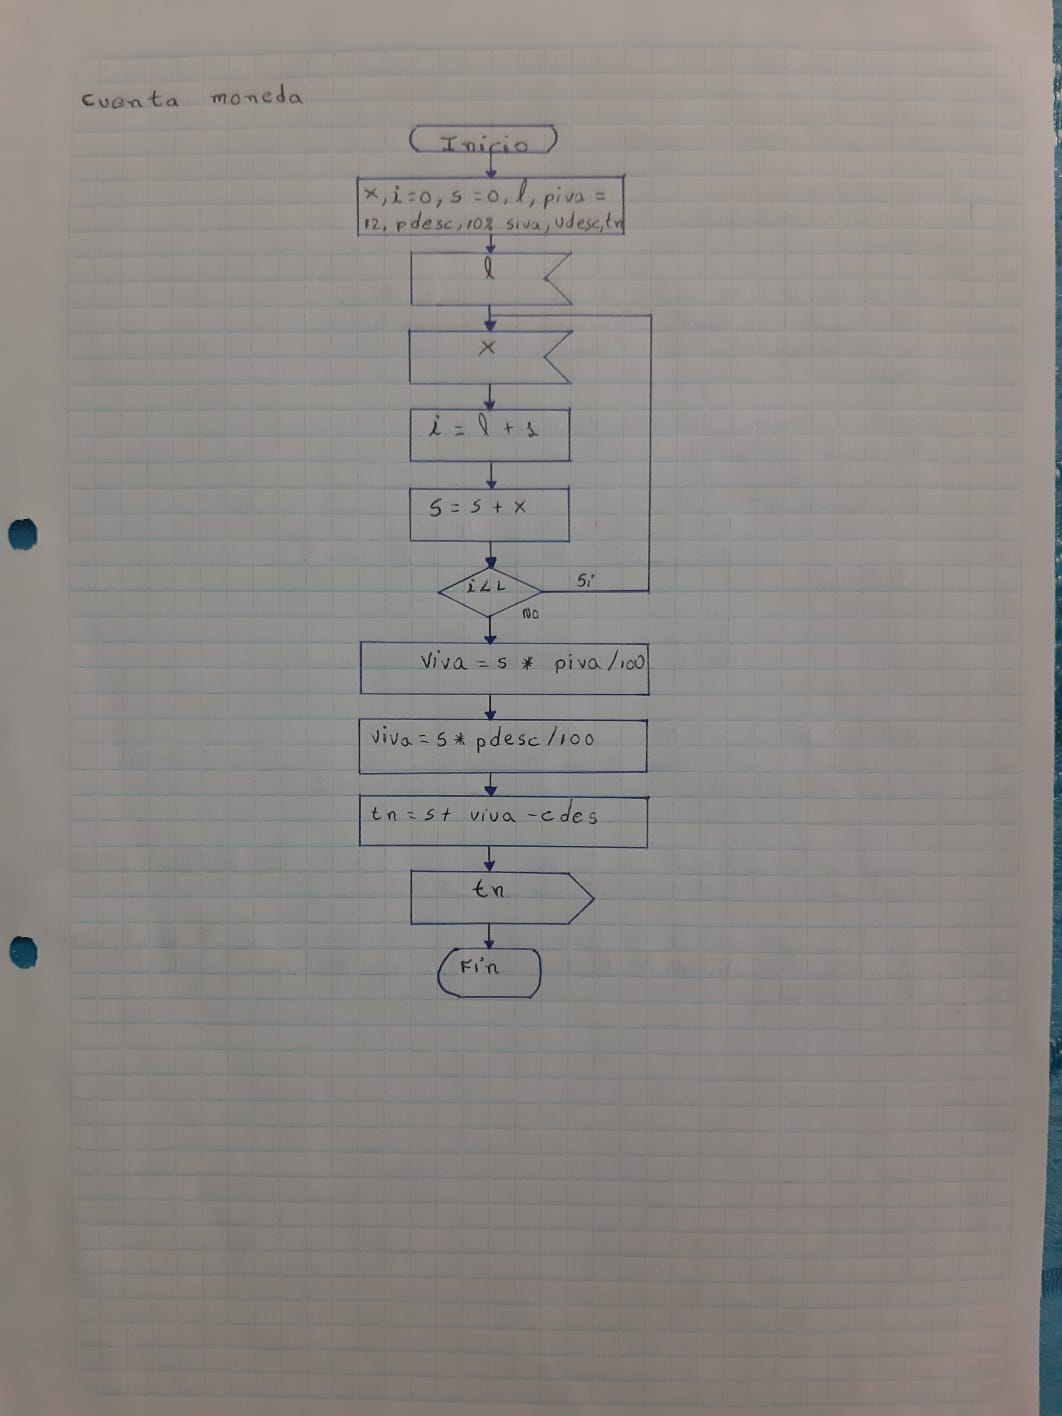 cuenta moneda
Inicio
x, i=0, s=0, l, piva =
12, pdesc, 10% siva, vdesc, tn
l
x
i = l + 1
s = s + x
i<L
Si
NO
viva = s * piva/100
viva = s * pdesc/100
tn = s+ viva - cdes
tn
Fin